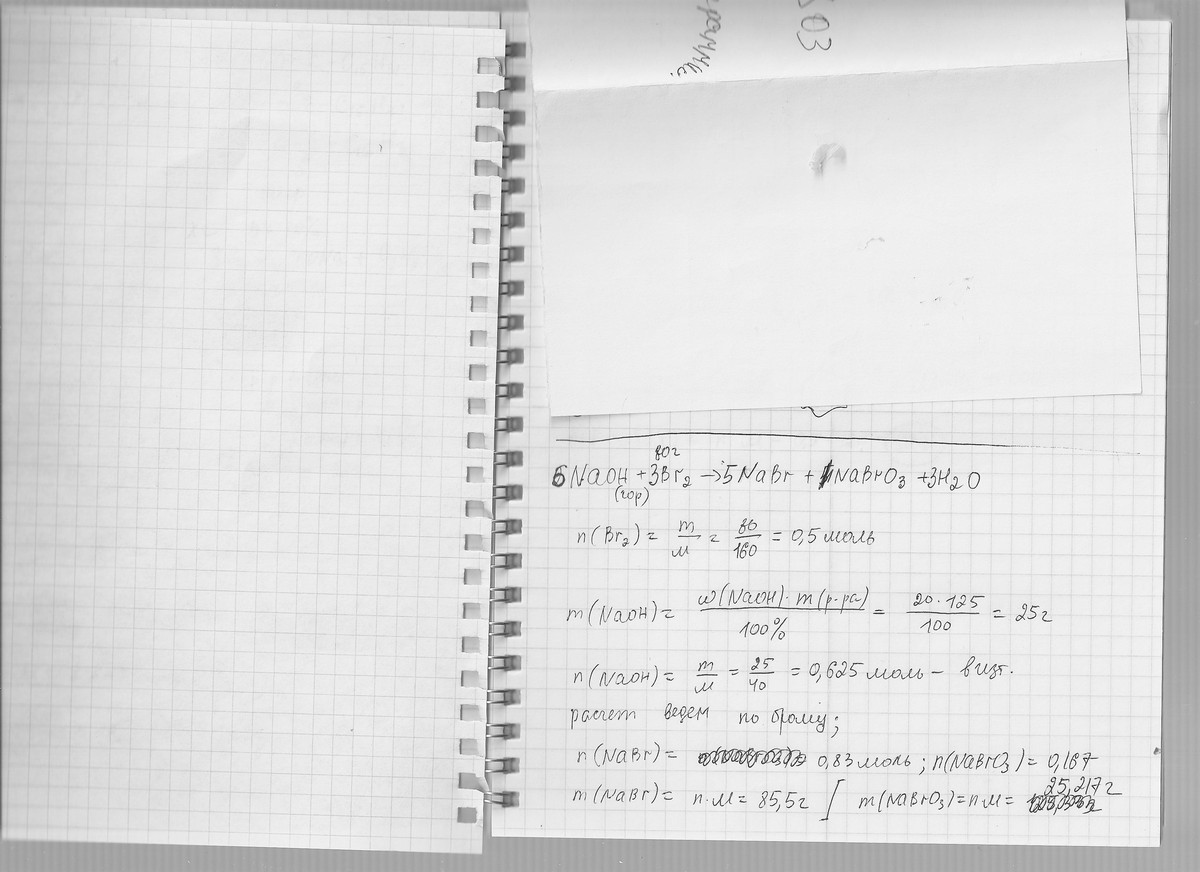 03
80г
6NaOH + 3Br2 → 5NaBr + 1NaBrO3 + 3H2O
(гор)
n(Br2) = m/M = 80/160 = 0,5 моль
m(NaOH) = ω(NaOH)·m(р-ра)/100% = 20·125/100 = 25г
n(NaOH) = m/M = 25/40 = 0,625 моль – в изт.
расчет ведем по брому;
n(NaBr) = 0,83 моль; n(NaBrO3) = 0,167
m(NaBr) = n·M = 85,5г / m(NaBrO3) = n·M = 25,217г